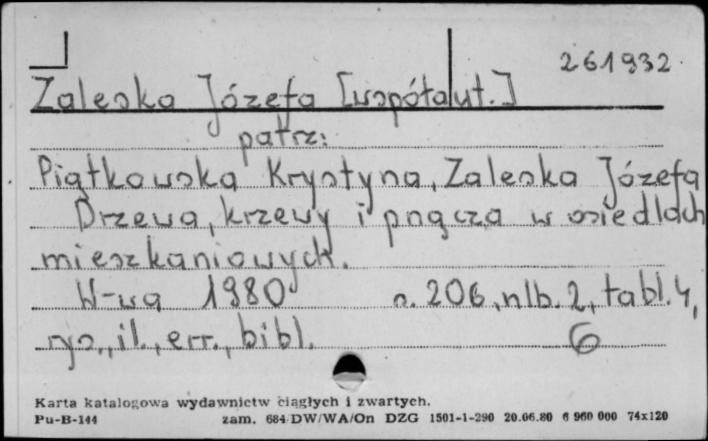 261932
Zaleska Józefa [współaut.]
patrz:
Piątkowska Krystyna, Zaleska Józefa
Drzewa, krzewy i pnącza w osiedlach
mieszkaniowych.
W-wa 1980 s. 206, nlb. 2, tabl. 4,
rys., il., err., bibl. 6
Karta katalogowa wydawnictw ciągłych i zwartych.
Pu-B-144 zam. 684/DW/WA/On DZG 1501-1-290 20.06.80 6 960 000 74x120